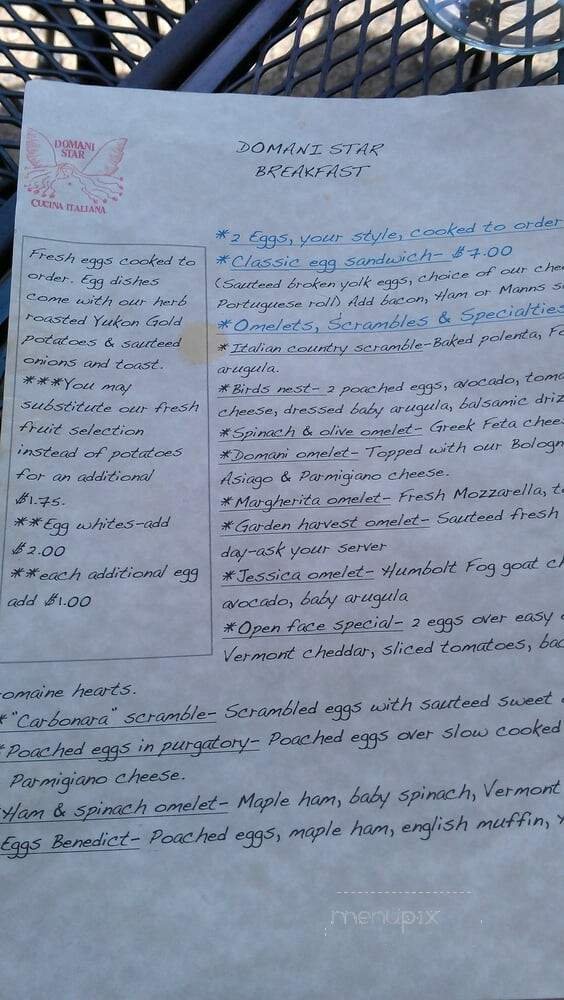 DOMANI
STAR
CUCINA ITALIANA
DOMANI STAR
BREAKFAST
Fresh eggs cooked to
order. Egg dishes
come with our herb
roasted Yukon Gold
potatoes & sauteed
onions and toast.
***You may
substitute our fresh
fruit selection
instead of potatoes
for an additional
$1.75.
**Egg whites-add
$2.00
**each additional egg
add $1.00
*2 Eggs, your style, cooked to order
*Classic egg sandwich- $7.00
(Sauteed broken yolk eggs, choice of our
Portuguese roll) Add bacon, Ham or Manns
*Omelets, Scrambles & Specialties
*Italian country scramble-Baked polenta,
arugula.
*Birds nest- 2 poached eggs, avocado,
cheese, dressed baby arugula, balsamic
*Spinach & olive omelet- Greek Feta
*Domani omelet- Topped with our
Asiago & Parmigiano cheese.
*Margherita omelet- Fresh Mozzarella,
*Garden harvest omelet- Sauteed fresh
day-ask your server
*Jessica omelet- Humbolt Fog goat
avocado, baby arugula
*Open face special- 2 eggs over easy
Vermont cheddar, sliced tomatoes,
omaine hearts.
*"Carbonara" scramble- Scrambled eggs with sauteed sweet
*Poached eggs in purgatory- Poached eggs over slow cooked
Parmigiano cheese.
Ham & spinach omelet- Maple ham, baby spinach, Vermont
Eggs Benedict- Poached eggs, maple ham, english muffin,
menupix